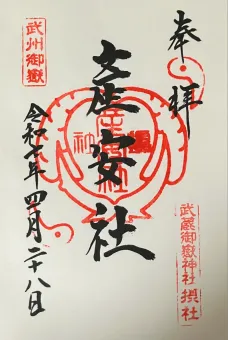 奉拝
武州御嶽
産安社
令和七年四月二十八日
武蔵御嶽神社摂社